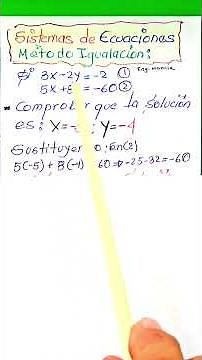 Sistemas de Ecuaciones
Método Igualación:
3X-2Y=-2 ①
5X+8 =-60②
Comprobar que la solución
es: X=- Y=-4
Sustituyendo en(2)
5(-5)+8(-4) 60 -25-32=-60